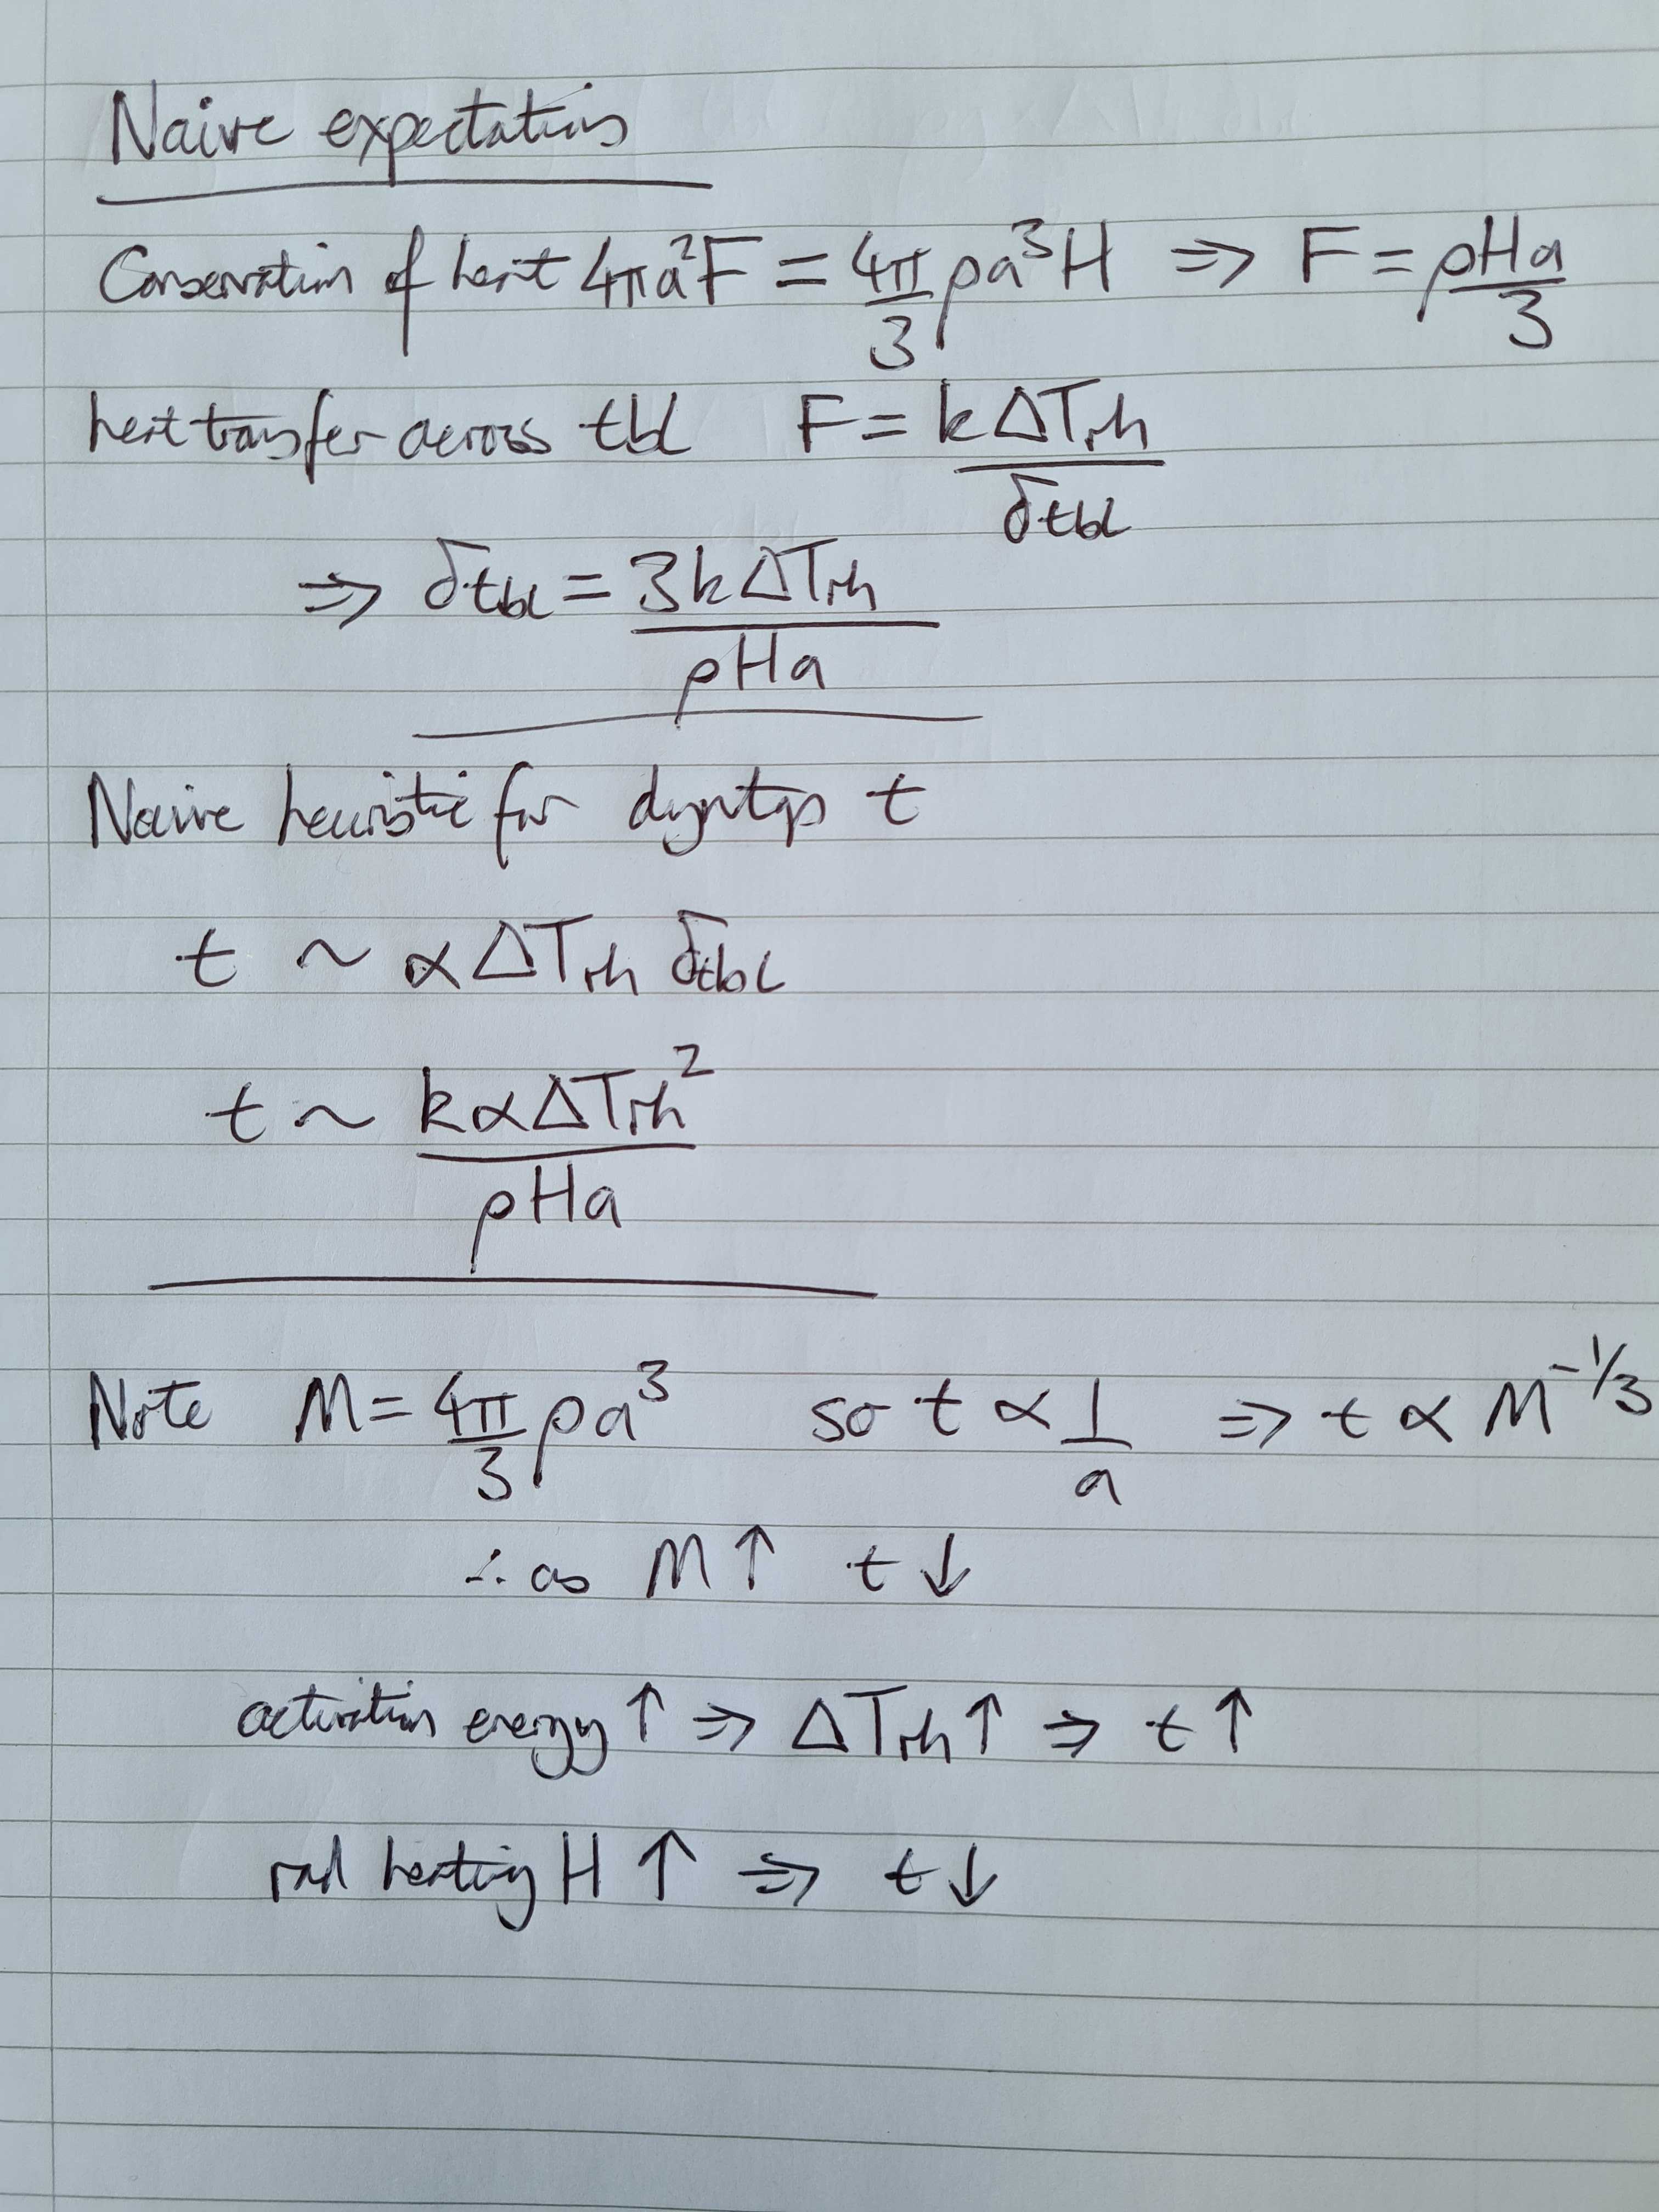 Naive expectations
Conservation of heat 4πa²F = 4π/3 ρa³H ⇒ F = ρHa/3
heat transfer across tbl F = kΔT_rh/δ_tbl
⇒ δ_tbl = 3kΔT_rh/ρHa
Naive heuristic for dyntop t
t ~ αΔT_rh δ_tbl
t ~ kαΔT_rh²/ρHa
Note M = 4π/3 ρa³ so t ∝ 1/a ⇒ t ∝ M^-1/3
∴ as M ↑ t ↓
activation energy ↑ ⇒ ΔT_rh ↑ ⇒ t ↑
rad heating H ↑ ⇒ t ↓